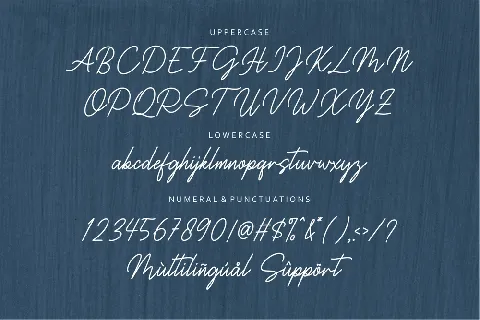 UPPERCASE
ABCDEFGHIJKLMN
OPQRSTUVWXYZ
LOWERCASE
abcdefghijklmnopqrstuvwxyz
NUMERAL & PUNCTUATIONS
1234567890!@#$%^&*(),.<>/?
Mùltiliñgúål Sûppõrt